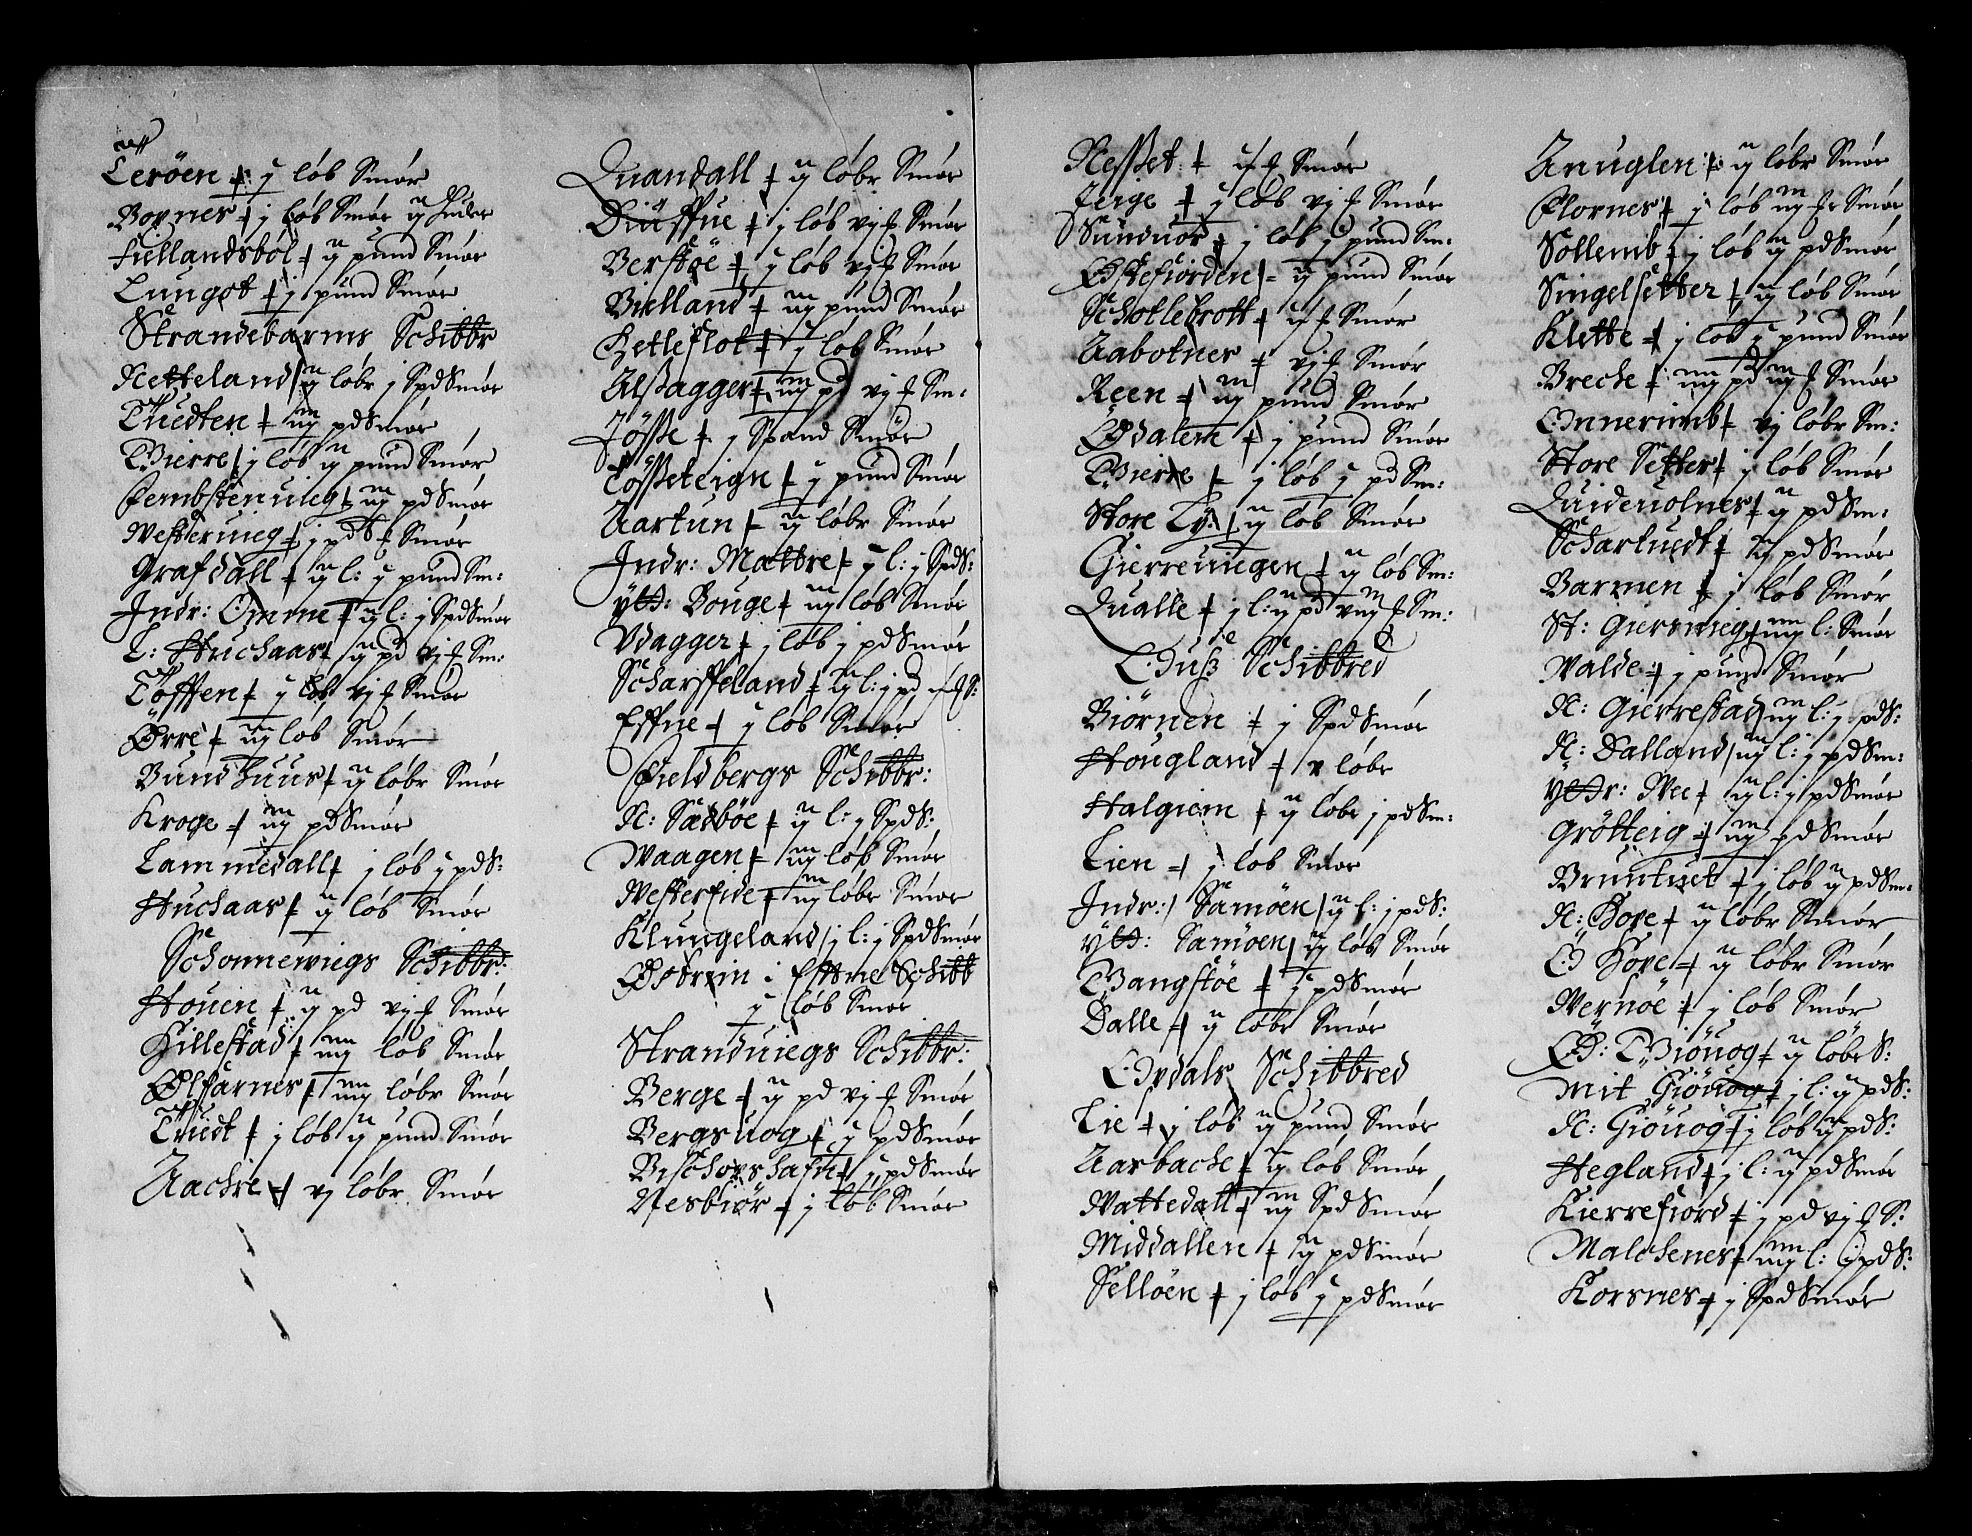 Terøen j løb Smør
Bopnes j løb Smør ij huder
Fiellandsbol ij pund Smør
Lungøt j pund Smør
Strandebarms Schibbr
Netteland ij løbr j Spd Smør
Tuedten iij pd Smør
Bierre j løb ij pund Smør
Fembstenuieg iij pd Smør
Westeruieg j pd Smør
Grafdall ij l: j pund Sm:
Indr: Omme ij l: j Spd Smør
L: Huchaas ij pd vj Sm:
Tofften j løb vj Smør
Ørre iij løb Smør
Bundhuus ij løbr Smør
Kroge iij pd Smør
Lammedall j løb j pd S:
Huchaas ij løb Smør
Schonneuiegs Schibbr:
Houen ij pd vj Smør
Hillestad iiij løb Smør
Ølfarnes iiij løbr Smør
Tuedt j løb ij pund Smør
Aachre vj løbr Smør
Quandall ij løbr Smør
Duffue j løb vj Smør
Berstøe j løb vj Smør
Bielland iij pund Smør
Ketleflot j løb Smør
Alsagger iij pd vj Sm:
Jøsse j Spand Smør
Tøsseteign j pund Smør
Aartun ij løbr Smør
Indr: Mattre j l: j Spd S:
Ytt: Bouge iij løb Smør
Vdagger j løb j pd Smør
Scharffeland ij l: j pd S:
Effne j løb Smør
Fieldbergs Schibbr:
N: Sæbøe ij l: j Spd S:
Waagen iij løb Smør
Westerside iij løbr Smør
Klungeland j l: j Spd Smør
Odsmin i Effne Schibb
j løb Smør
Stranduiegs Schibbr:
Berge ij pd vj Smør
Bergsuog j pd Smør
Bischopshafn j pd Smør
Nesbiør j løb Smør
Nesset Smør
Jerge j løb vj Smør
Sunduor j løb j pund Sm:
Østefiorden ij pund Smør
Schollebrott Smør
Aabotnes vj Smør
Reen iij pund Smør
Ødalem j pund Smør
Bierre j løb j pd Sm:
Store Ly ij løb Smør
Gierreuiegen ij løb Sm:
Qualle j l: ij pd viij Sm:
Ouss Schibbred
Biørnen j Spd Smør
Hougland v løbr
Halgiem ij løbr j pd Sm:
Lien j løb Smør
Indr: Samøen ij l: j pd S:
Ytt: Samøen ij løb Smør
Bangstøe j pd Smør
Dalle ij løbr Smør
Opdals Schibbred
Lie j løb ij pund Smør
Aarbache ij løb Smør
Wattedall iij Spd Smør
Middallen ij pd Smør
Selløen j løb j pd Smør
Anuglen ij løbr Smør
Flornes j løb iij Smør
Sollemb j løb ij pd Smør
Singelsetter ij løb Smør
Klette j løb j pund Smør
Breche iiij pd iij Smør
Onnerimb vj løbr Sm:
Store Setter j løb Smør
Quideuolnes ij pd Sm:
Schartuedt ij pd Smør
Barmen j løb Smør
St: Giersuieg iiij l: Smør
Walde j pund Smør
N: Gierrestad iij l: j pd S:
N: Dalland iij l: j pd Sm:
Yttr: Wee ij l: j pd Smør
Grøtteig iij pd Smør
Bruntuet j løb ij pd Sm:
N: Hope ij løbr Smør
O Hope ij løbr Smør
Wernøe j løb Smør
Ø: Giøuog ij løbr S:
Mit Giøuog j l: ij pd S:
N: Giøuog j løb ij pd S:
Hegland j l: ij pd Smør
Kierrefiord j pd vj S:
Malchenes iiij l: j pd S:
Korsnes j Spd Smør